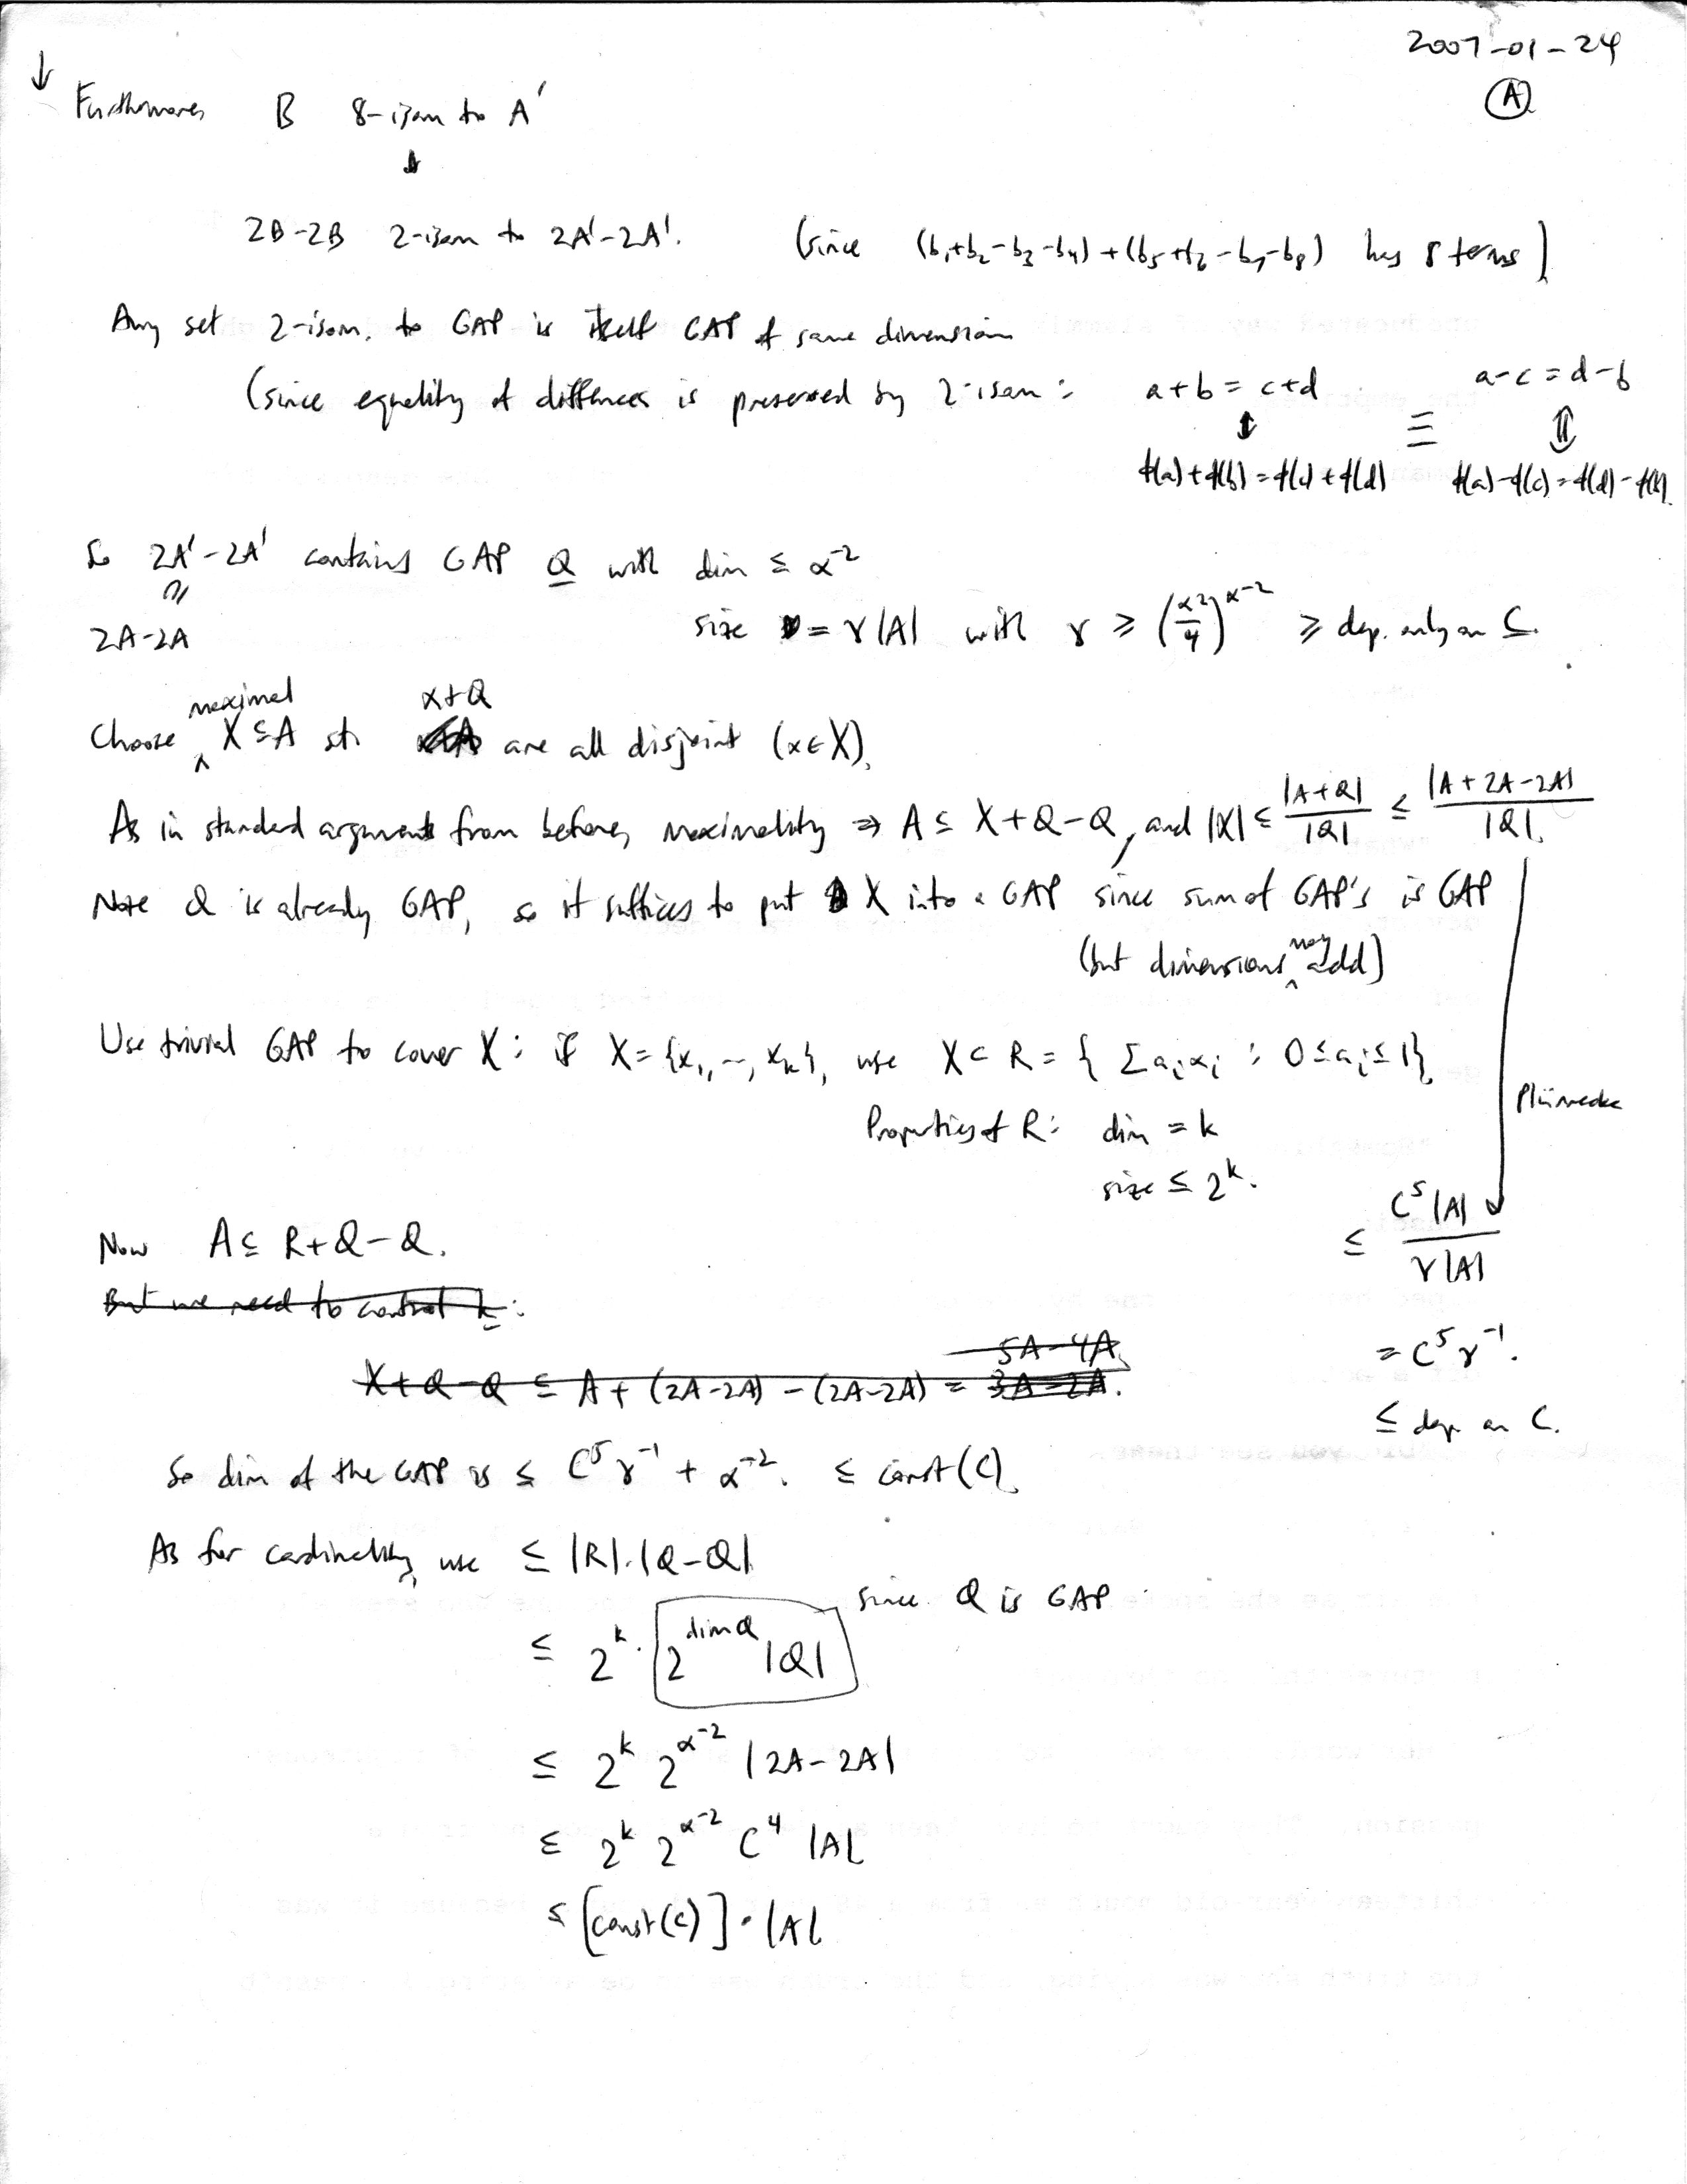 2007-01-24
A
↓ Furthermore, B 8-isom to A'
⇓
2B-2B 2-isom to 2A'-2A'. (since (b₁+b₂-b₃-b₄)+(b₅+b₆-b₇-b₈) has 8 terms)
Any set 2-isom. to GAP is itself GAP of same dimension
(since equality of differences is preserved by 2-isom: a+b = c+d ≡ a-c = d-b
⇕ ⇕
f(a)+f(b)=f(c)+f(d) f(a)-f(c)=f(d)-f(b).
So 2A'-2A' contains GAP Q with dim ≤ α⁻²
⊆
2A-2A size = γ|A| with γ ≥ (α²/4)^{α⁻²} ≥ dep. only on C.
Choose maximal X ⊆ A st. x+Q are all disjoint (x∈X).
As in standard argument from before, maximality ⇒ A ⊆ X+Q-Q, and |X| ≤ |A+Q|/|Q| ≤ |A+2A-2A|/|Q|.
Note Q is already GAP, so it suffices to put X into a GAP since sum of GAP's is GAP
(but dimensions may add)
Use trivial GAP to cover X: if X={x₁,...,xₖ}, use X ⊂ R = { Σaᵢxᵢ : 0≤aᵢ≤1}
Plünnecke
Properties of R: dim = k
size ≤ 2ᵏ.
≤ C⁵|A| / γ|A|
Now A ⊆ R+Q-Q.
But we need to control k:
= C⁵γ⁻¹.
X+Q-Q ⊆ A+(2A-2A)-(2A-2A) = 3A-2A. 5A-4A
≤ dep. on C.
So dim of the GAP is ≤ C⁵γ⁻¹ + α⁻². ≤ const(C).
As for cardinality, use ≤ |R|.|Q-Q|
≤ 2ᵏ. 2^{dim Q} |Q| since Q is GAP
≤ 2ᵏ 2^{α⁻²} |2A-2A|
≤ 2ᵏ 2^{α⁻²} C⁴ |A|
≤ [const(C)]·|A|